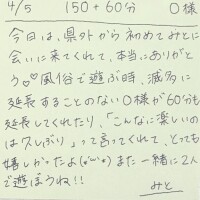 4/5 150+60分 O様
今日は、県外から初めてみとに
会いに来てくれて、本当にありがと
う♡♥風俗で遊ぶ時、滅多に
延長することのないO様が60分も
延長してくれたり、「こんなに楽しいの
は久しぶり」って言ってくれて、とっても
嬉しかったよ(о´ω`о)また一緒に2人
で遊ぼうね!!
みと